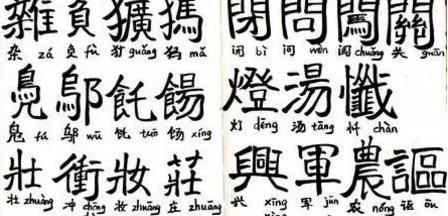 雜 負 獷 獁
杂 zá 负 fù 犷 guǎng 犸 mǎ
鳧 鄔 飥 餳
凫 fú 邬 wū 饦 tuō 饧 xíng
壯 衝 妝 莊
壮 zhuàng 冲 chōng 妆 zhuāng 庄 zhuāng
閉 問 闖 關
闭 bì 问 wèn 闯 chuǎng 关 guān
燈 湯 懺
灯 dēng 汤 tāng 忏 chàn
興 軍 農 謳
兴 xīng 军 jūn 农 nóng 讴 ōu
xìng